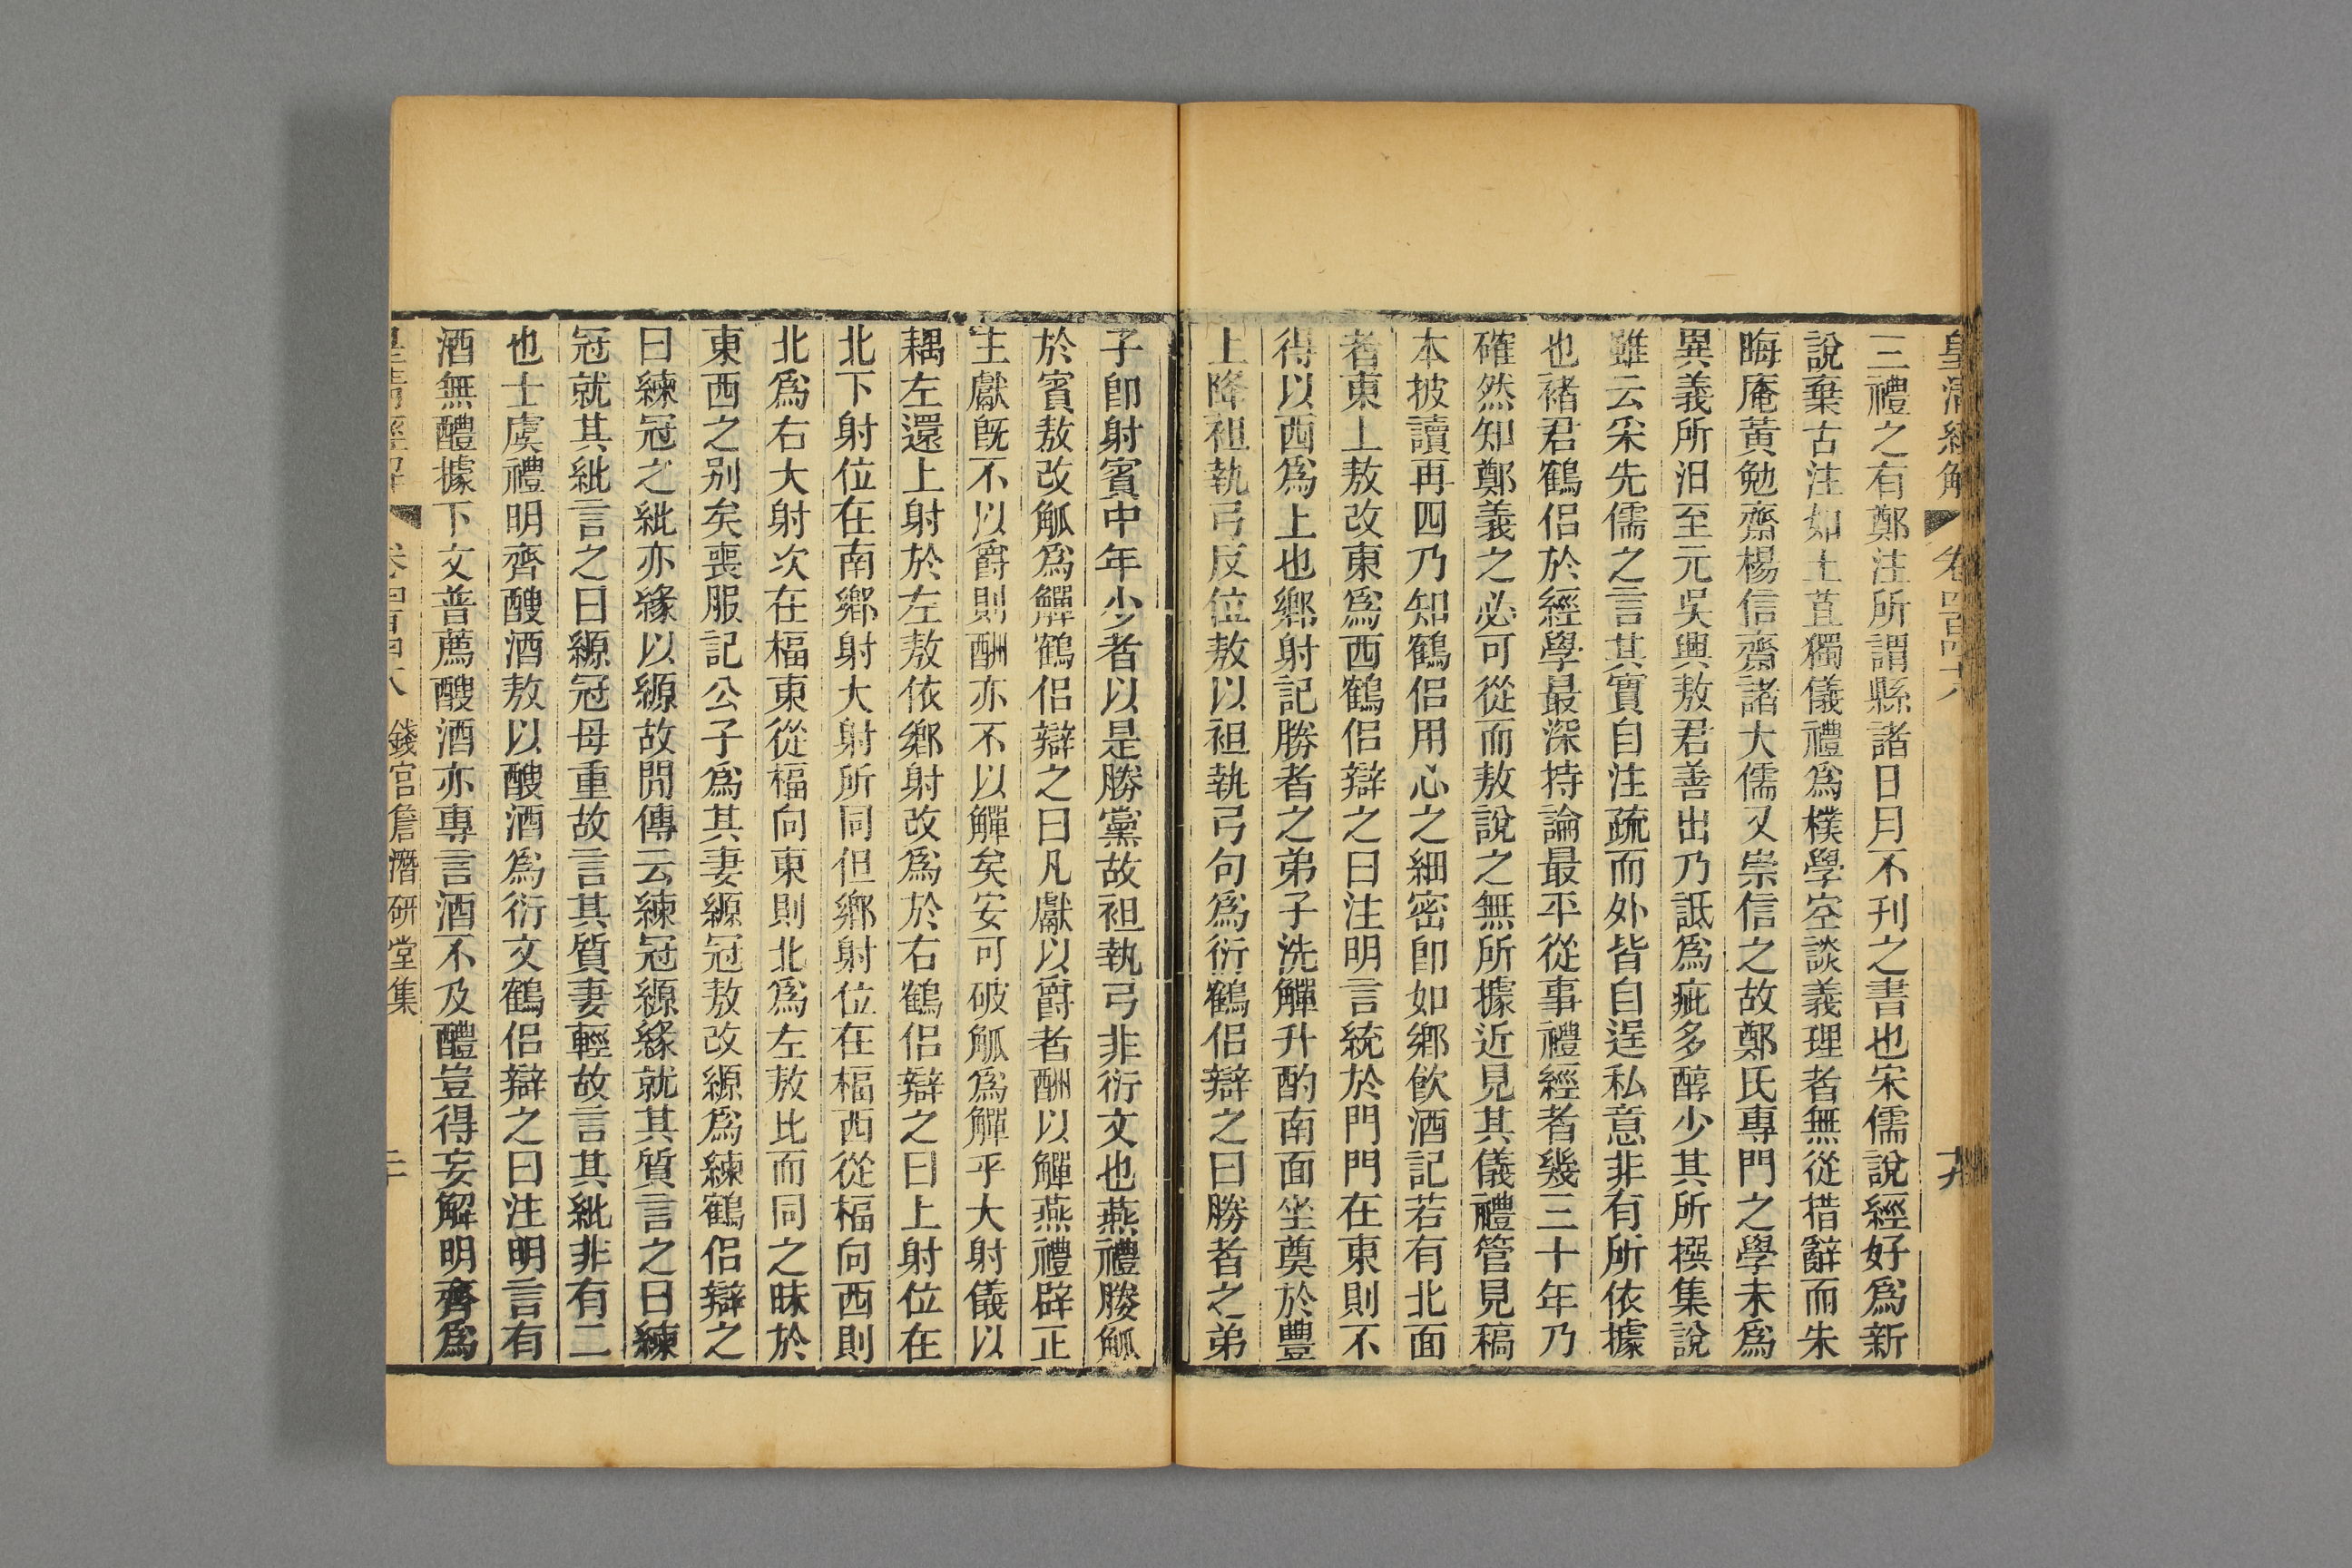 皇清經解 卷四百四十八 九
三禮之有鄭注所謂縣諸日月不刊之書也宋儒說經好爲新
說棄古注如土苴獨儀禮爲樸學空談義理者無從措辭而朱
晦庵黃勉齋楊信齋諸大儒又崇信之故鄭氏專門之學未爲
異義所汨至元吳興敖君善出乃詆爲疵多醇少其所撰集說
雖云采先儒之言其實自注疏而外皆自逞私意非有所依據
也褚君鶴侶於經學最深持論最平從事禮經者幾三十年乃
確然知鄭義之必可從而敖說之無所據近見其儀禮管見稿
本披讀再四乃知鶴侶用心之細密卽如鄉飮酒記若有北面
者東上敖改東爲西鶴侶辯之曰注明言統於門門在東則不
得以西爲上也鄉射記勝者之弟子洗觶升酌南面坐奠於豐
上降袒執弓反位敖以袒執弓句爲衍鶴侶辯之曰勝者之弟
子卽射賓中年少者以是勝黨故袒執弓非衍文也燕禮媵觚
於賓敖改觚爲觶鶴侶辯之曰凡獻以爵者酬以觶燕禮辟正
主獻旣不以爵則酬亦不以觶矣安可破觚爲觶乎大射儀以
耦左還上射於左敖依鄉射改爲於右鶴侶辯之曰上射位在
北下射位在南鄉射大射所同但鄉射位在楅西從楅向西則
北爲右大射次在楅東從楅向東則北爲左敖比而同之昧於
東西之別矣喪服記公子爲其妻縓冠敖改縓爲練鶴侶辯之
曰練冠之紕亦緣以縓故閒傳云練冠縓緣就其質言之曰練
冠就其紕言之曰縓冠母重故言其質妻輕故言其紕非有二
也士虞禮明齊醙酒敖以醙酒爲衍文鶴侶辯之曰注明言有
酒無醴據下文普薦醙酒亦專言酒不及醴豈得妄解明齊爲
皇清經解 卷四百四十八 錢宮詹潛研堂集 二十